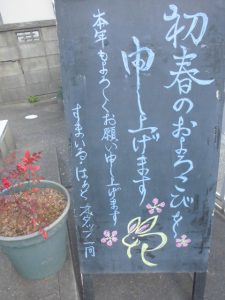 初春のおよろこびを
申し上げます
本年もよろしくお願い申し上げます
すまいる・はあと スタッフ一同